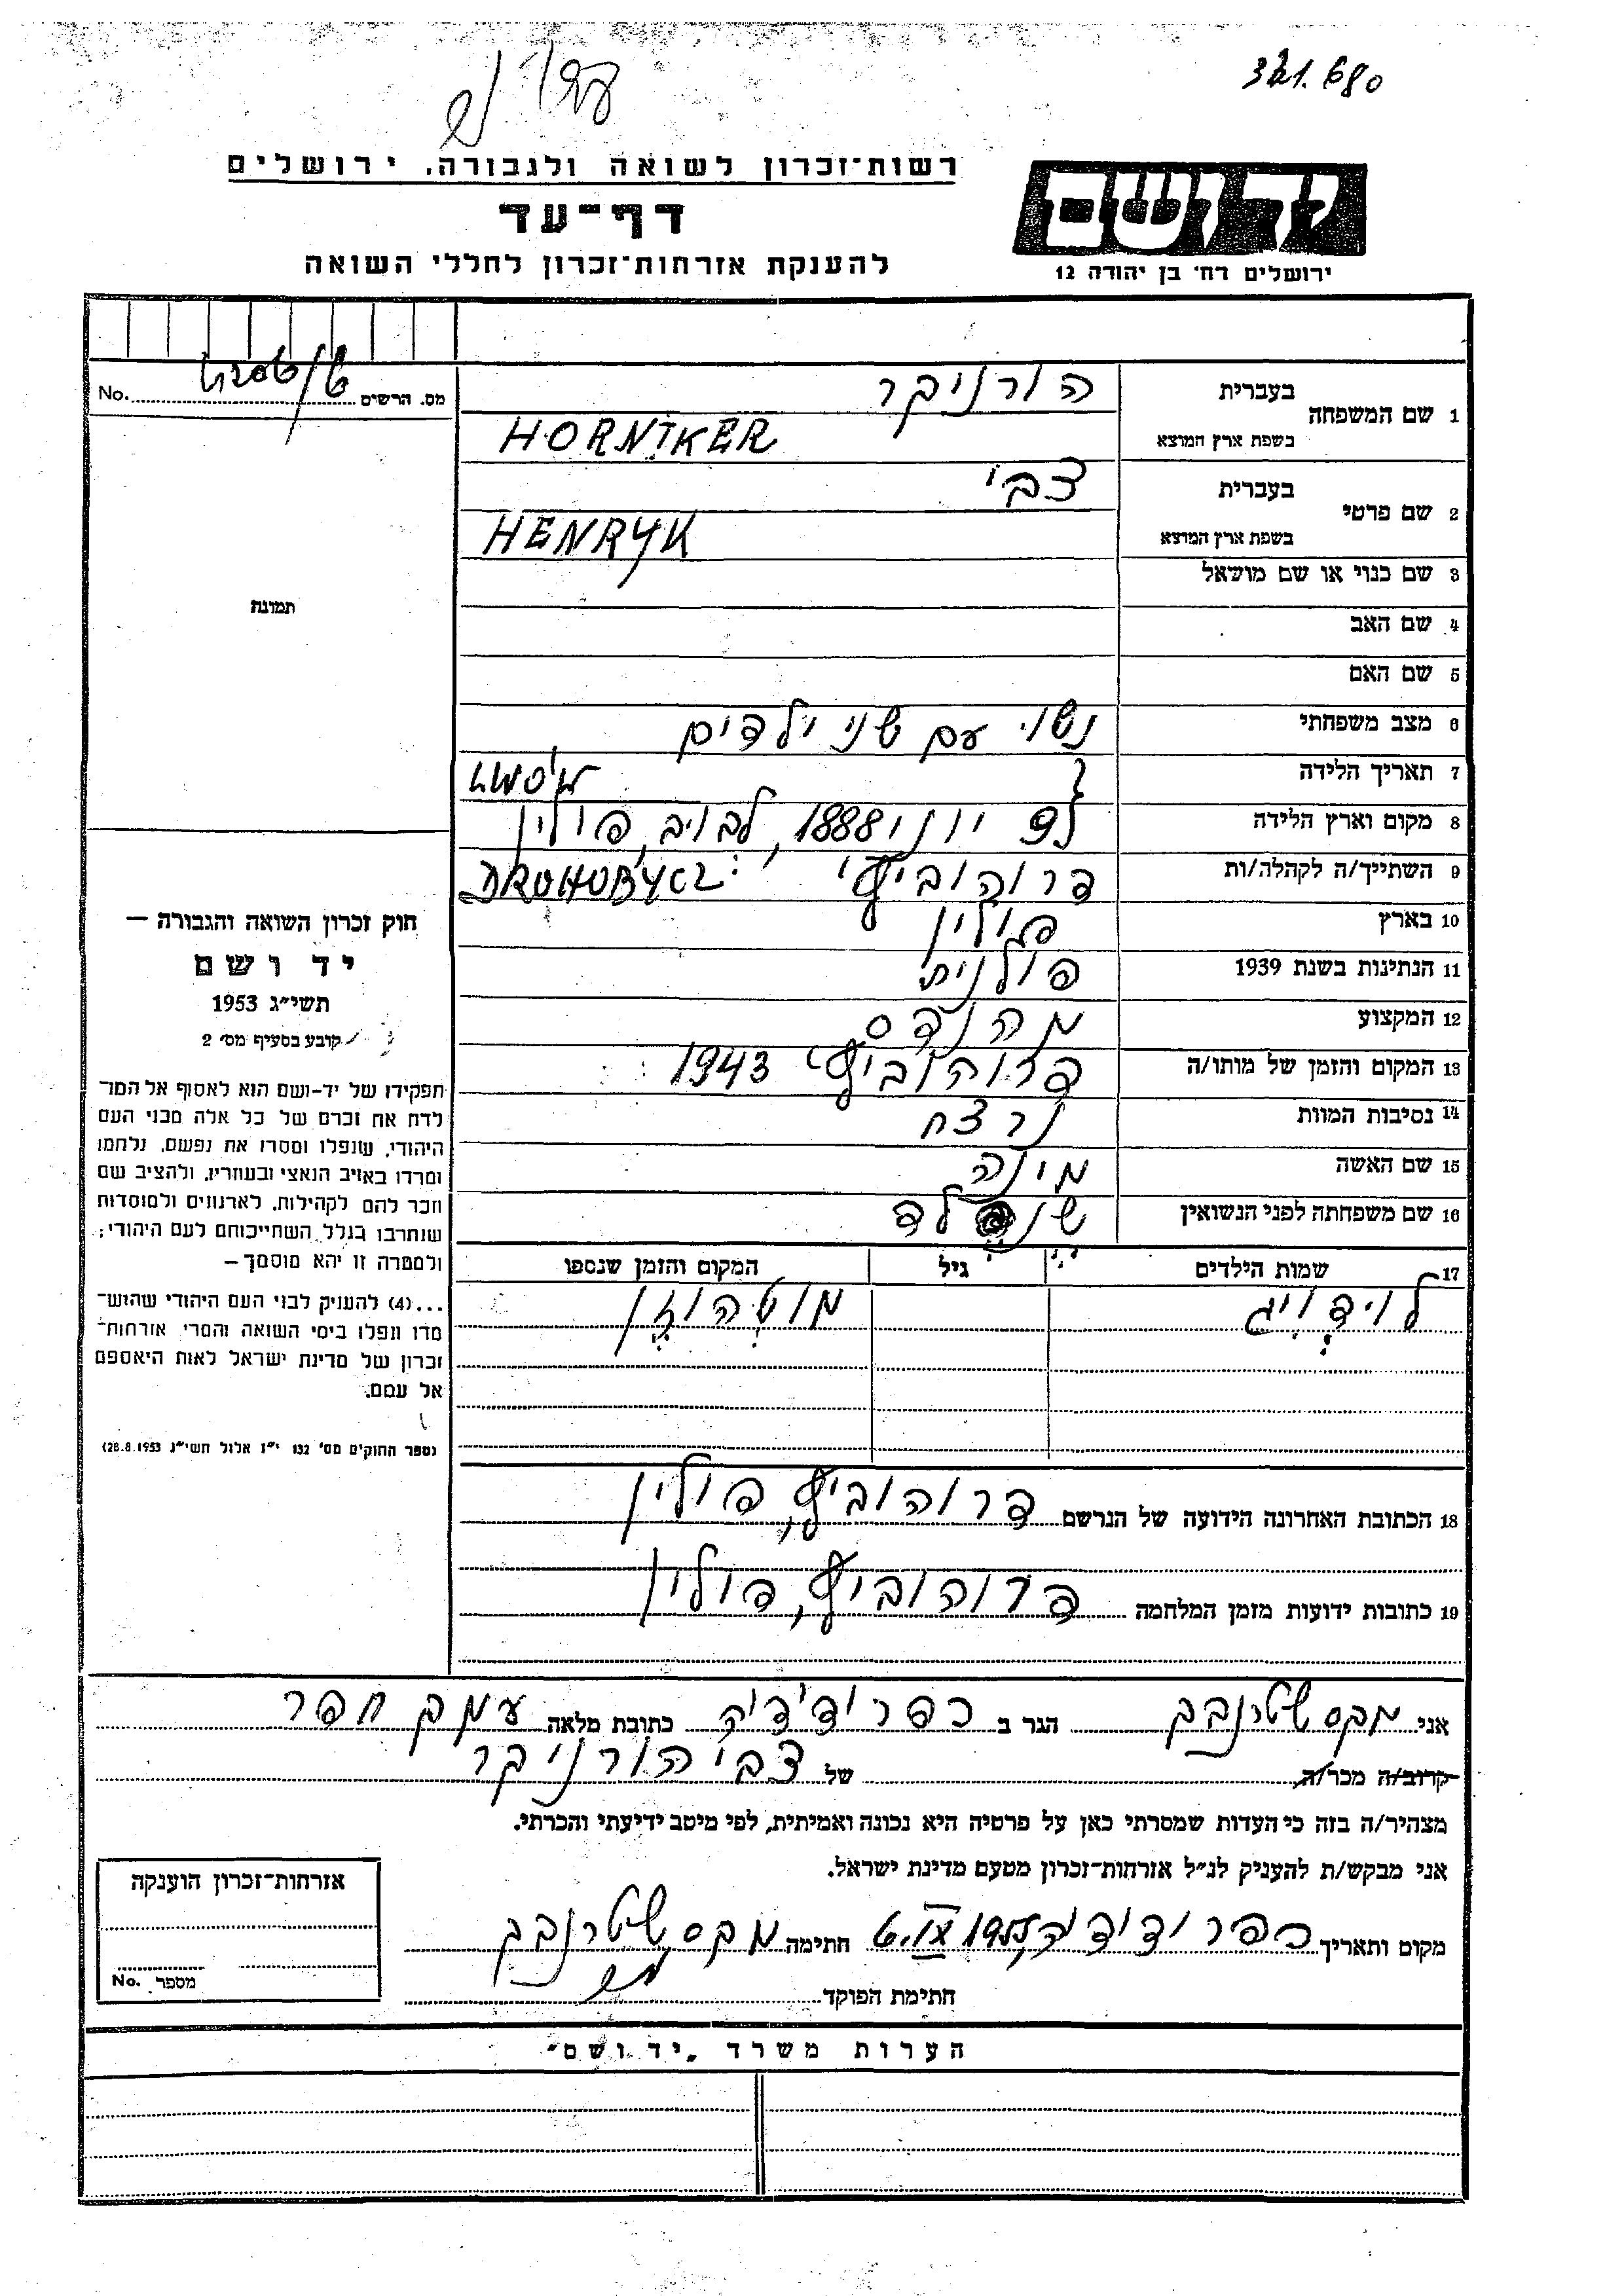 321.680
רשות־זכרון לשואה ולגבורה, ירושלים
דף־עד
להענקת אזרחות־זכרון לחללי השואה
יד ושם
ירושלים רח׳ בן יהודה 12
מס. הרשים No.
1 שם המשפחה בעברית הורניקר
בשפת ארץ המוצא HORNIKER
2 שם פרטי בעברית צבי
בשפת ארץ המוצא HENRYK
3 שם כנוי או שם מושאל
4 שם האב
5 שם האם
6 מצב משפחתי נשוי עם שני ילדים
7 תאריך הלידה LWÓW
8 מקום וארץ הלידה יוני 1888, לבוב, פולין
9 השתייך/ה לקהלה/ות דרוהוביץ׳ DROHOBYCZ
10 בארץ פולין
11 הנתינות בשנת 1939 פולנית
12 המקצוע מהנדס
13 המקום והזמן של מותו/ה דרוהוביץ׳ 1943
14 נסיבות המוות נרצח
15 שם האשה מינה
16 שם משפחתה לפני הנשואין
17 שמות הילדים גיל המקום והזמן שנספו
לודויג מוטהוזן
18 הכתובת האחרונה הידועה של הנרשם דרוהוביץ, פולין
19 כתובות ידועות מזמן המלחמה דרוהוביץ, פולין
תמונה
חוק זכרון השואה והגבורה —
יד ושם
תשי״ג 1953
קובע בסעיף מס׳ 2
תפקידו של יד-ושם הוא לאסוף אל המו־
לדת את זכרם של כל אלה מבני העם
היהודי, שנפלו ומסרו את נפשם, נלחמו
ומרדו באויב הנאצי ובעוזריו, ולהציב שם
וזכר להם לקהילות, לארגונים ולמוסדות
שנחרבו בגלל השתייכותם לעם היהודי;
ולמטרה זו יהא מוסמך —
...(4) להעניק לבני העם היהודי שהוש־
מדו ונפלו בימי השואה והמרי אזרחות־
זכרון של מדינת ישראל לאות היאספם
אל עמם.
(ספר החוקים מס׳ 132 י״ז אלול תשי״ג 28.8.1953)
אני מקס שטרנבך הגר ב כפר ידידיה כתובת מלאה עמק חפר
קרוב/ה מכר/ה של צבי הורניקר
מצהיר/ה בזה כי העדות שמסרתי כאן על פרטיה היא נכונה ואמיתית, לפי מיטב ידיעתי והכרתי.
אני מבקש/ת להעניק לנ״ל אזרחות־זכרון מטעם מדינת ישראל.
מקום ותאריך כפר ידידיה 6.IX 1955 חתימה מקס שטרנבך
חתימת הפוקד
אזרחות־זכרון הוענקה
מספר No.
הערות משרד „יד ושם״